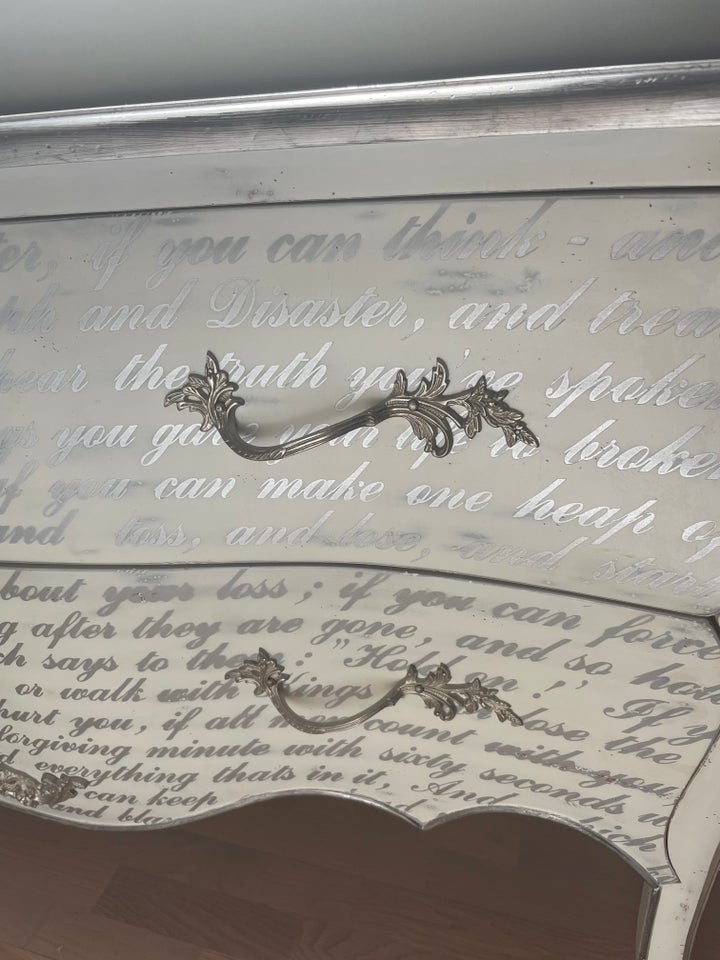 if you can think - and
and Disaster, and trea
hear the truth you've spoken
you gave your life to broken
if you can make one heap of
and toss, and lose, and start
bout your loss; if you can force
g after they are gone, and so hol
ch says to them: "Hold on!' If y
or walk with Kings lose the
hurt you, if all men count with you,
forgiving minute with sixty seconds w
everything thats in it, And which
can keep
and bla